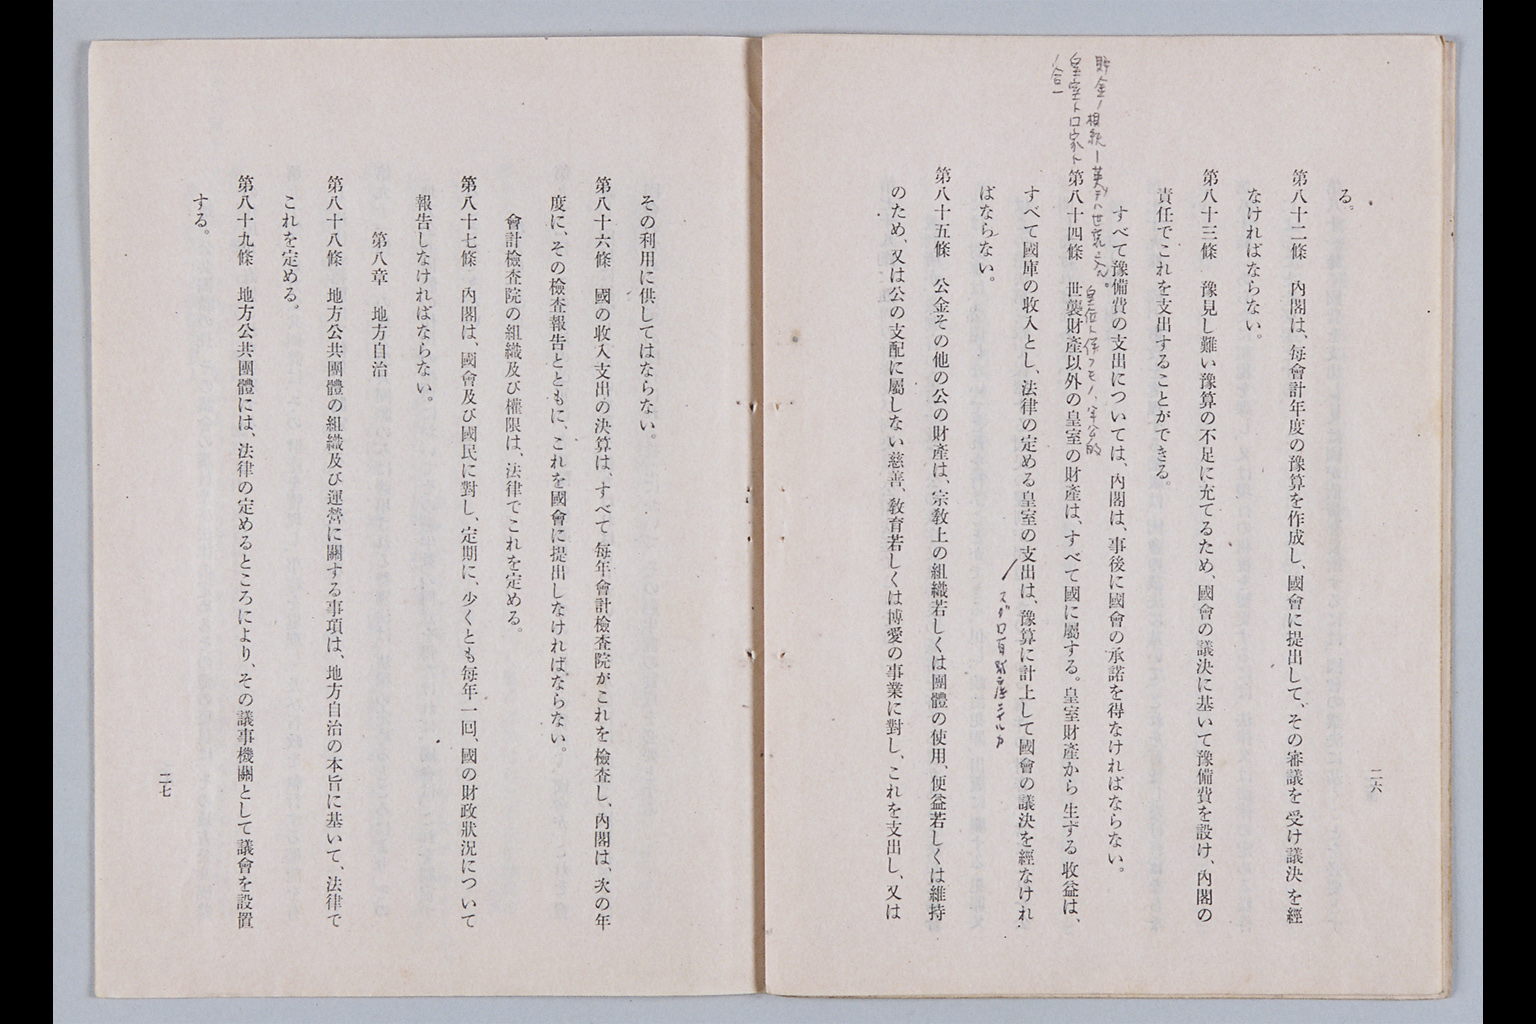 る。
第八十二條　內閣は、每會計年度の豫算を作成し、國會に提出して、その審議を受け議決を經
なければならない。
第八十三條　豫見し難い豫算の不足に充てるため、國會の議決に基いて豫備費を設け、內閣の
責任でこれを支出することができる。
すべて豫備費の支出については、內閣は、事後に國會の承諾を得なければならない。
第八十四條　世襲財產以外の皇室の財產は、すべて國に屬する。皇室財產から生ずる收益は、
すべて國庫の收入とし、法律の定める皇室の支出は、豫算に計上して國會の議決を經なけれ
ばならない。
第八十五條　公金その他の公の財產は、宗敎上の組織若しくは團體の使用、便益若しくは維持
のため、又は公の支配に屬しない慈善、敎育若しくは博愛の事業に對し、これを支出し、又は
二六
貯金ノ相続
皇室ト
合一
その利用に供してはならない。
第八十六條　國の收入支出の決算は、すべて每年會計檢査院がこれを檢査し、內閣は、次の年
度に、その檢査報吿とともに、これを國會に提出しなければならない。
會計檢査院の組織及び權限は、法律でこれを定める。
第八十七條　內閣は、國會及び國民に對し、定期に、少くとも每年一回、國の財政狀況について
報吿しなければならない。
第八章　地方自治
第八十八條　地方公共團體の組織及び運營に關する事項は、地方自治の本旨に基いて、法律で
これを定める。
第八十九條　地方公共團體には、法律の定めるところにより、その議事機關として議會を設置
する。
二七